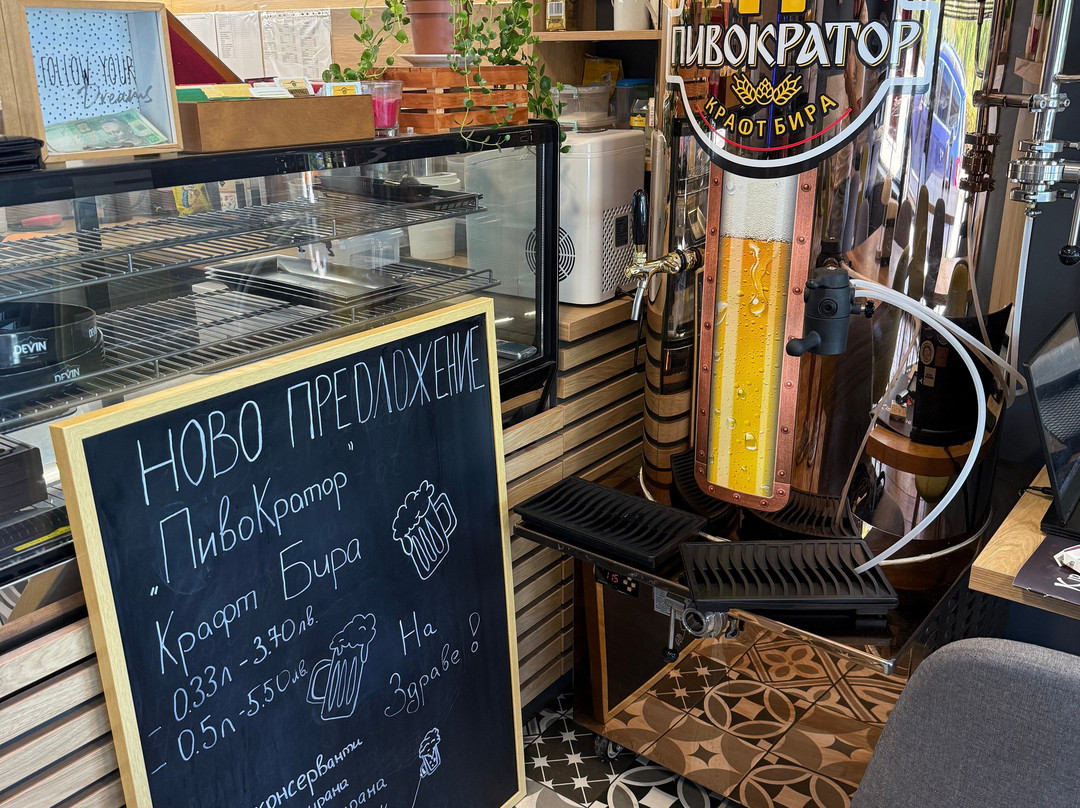 FOLLOW YOUR
Dreams
ПИВОКРАТОР
КРАФТ БИРА
DEVIN
DEVIN
НОВО ПРЕДЛОЖЕНИЕ
"ПивоКратор"
Крафт Бира
- 0.33л - 3.70лв.
- 0.5л - 5.50лв.
На
Здраве!
консерванти
15